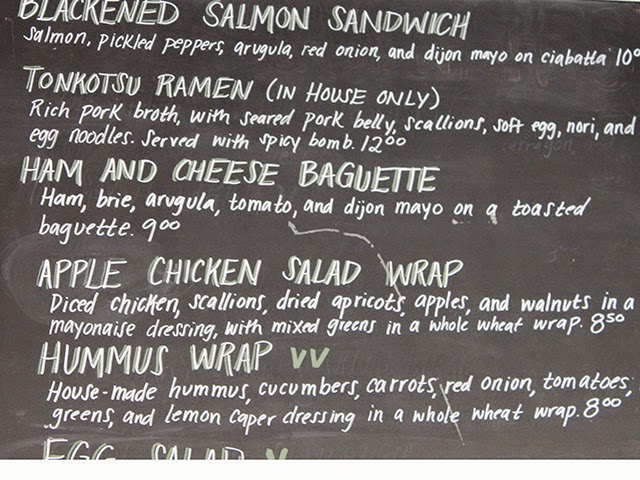 BLACKENED SALMON SANDWICH
Salmon, pickled peppers, arugula, red onion, and dijon mayo on ciabatta 10⁰
TONKOTSU RAMEN (IN HOUSE ONLY)
Rich pork broth, with seared pork belly, scallions, soft egg, nori, and
egg noodles. Served with spicy bomb. 12⁰⁰
HAM AND CHEESE BAGUETTE
Ham, brie, arugula, tomato, and dijon mayo on a toasted
baguette. 9⁰⁰
APPLE CHICKEN SALAD WRAP
Diced chicken, scallions, dried apricots, apples, and walnuts in a
mayonaise dressing, with mixed greens in a whole wheat wrap. 8⁵⁰
HUMMUS WRAP VV
House-made hummus, cucumbers, carrots, red onion, tomatoes,
greens, and lemon caper dressing in a whole wheat wrap. 8⁰⁰
EGG SALAD V